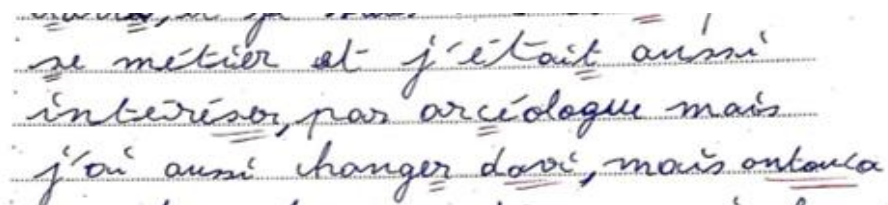 se métier et j'était aussi
intéréser, par arcéologue mais
j'ai aussi changer davi, mais ontouca